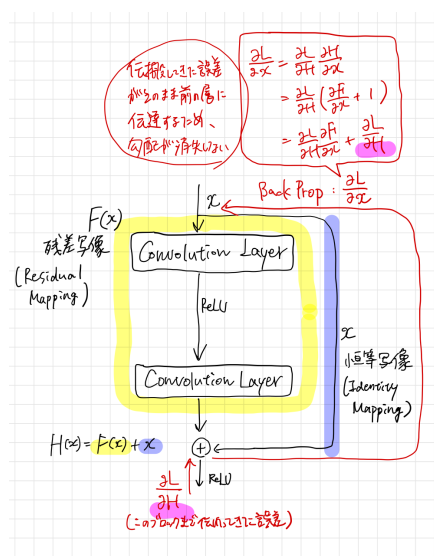 伝搬してきた誤差
がそのまま前の層に
伝達するため、
勾配が消失しない
∂L/∂x = ∂L/∂H ∂H/∂x
= ∂L/∂H (∂F/∂x + 1)
= ∂L/∂H ∂F/∂x + ∂L/∂H
Back Prop : ∂L/∂x
x
F(x)
残差写像
(Residual
Mapping)
Convolution Layer
ReLU
Convolution Layer
x
恒等写像
(Identity
Mapping)
H(x) = F(x) + x
+
ReLU
∂L/∂H
(このブロックまで伝わってきた誤差)